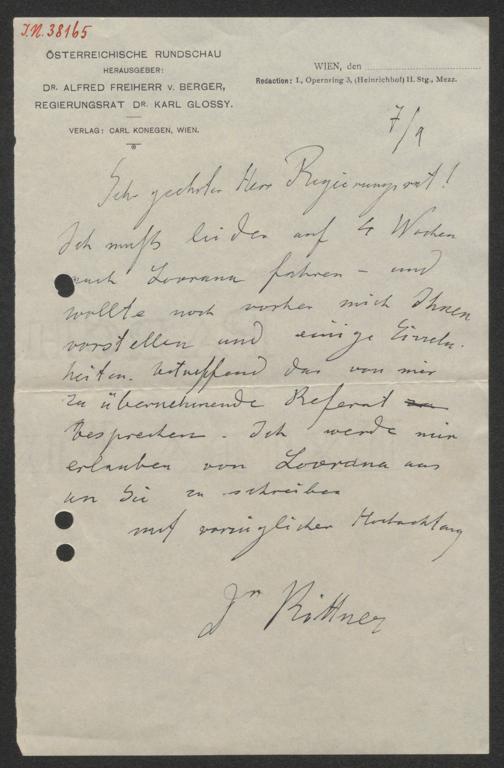 I.N. 38165
ÖSTERREICHISCHE RUNDSCHAU
HERAUSGEBER:
DR. ALFRED FREIHERR V. BERGER,
REGIERUNGSRAT DR. KARL GLOSSY.
VERLAG: CARL KONEGEN, WIEN.
WIEN, den
Redaction: I., Opernring 3, (Heinrichhof) II. Stg., Mezz.
7/9
Sehr geehrter Herr Regierungsrat!
Ich muß leider auf 4 Wochen
nach Lovrana fahren – und
wollte noch vorher mich Ihnen
vorstellen und einige Einzeln-
heiten betreffend das von mir
zu übernehmende Referat zu
besprechen. Ich werde mir
erlauben von Lovrana aus
an Sie zu schreiben
mit vorzüglicher Hochachtung
Rittner